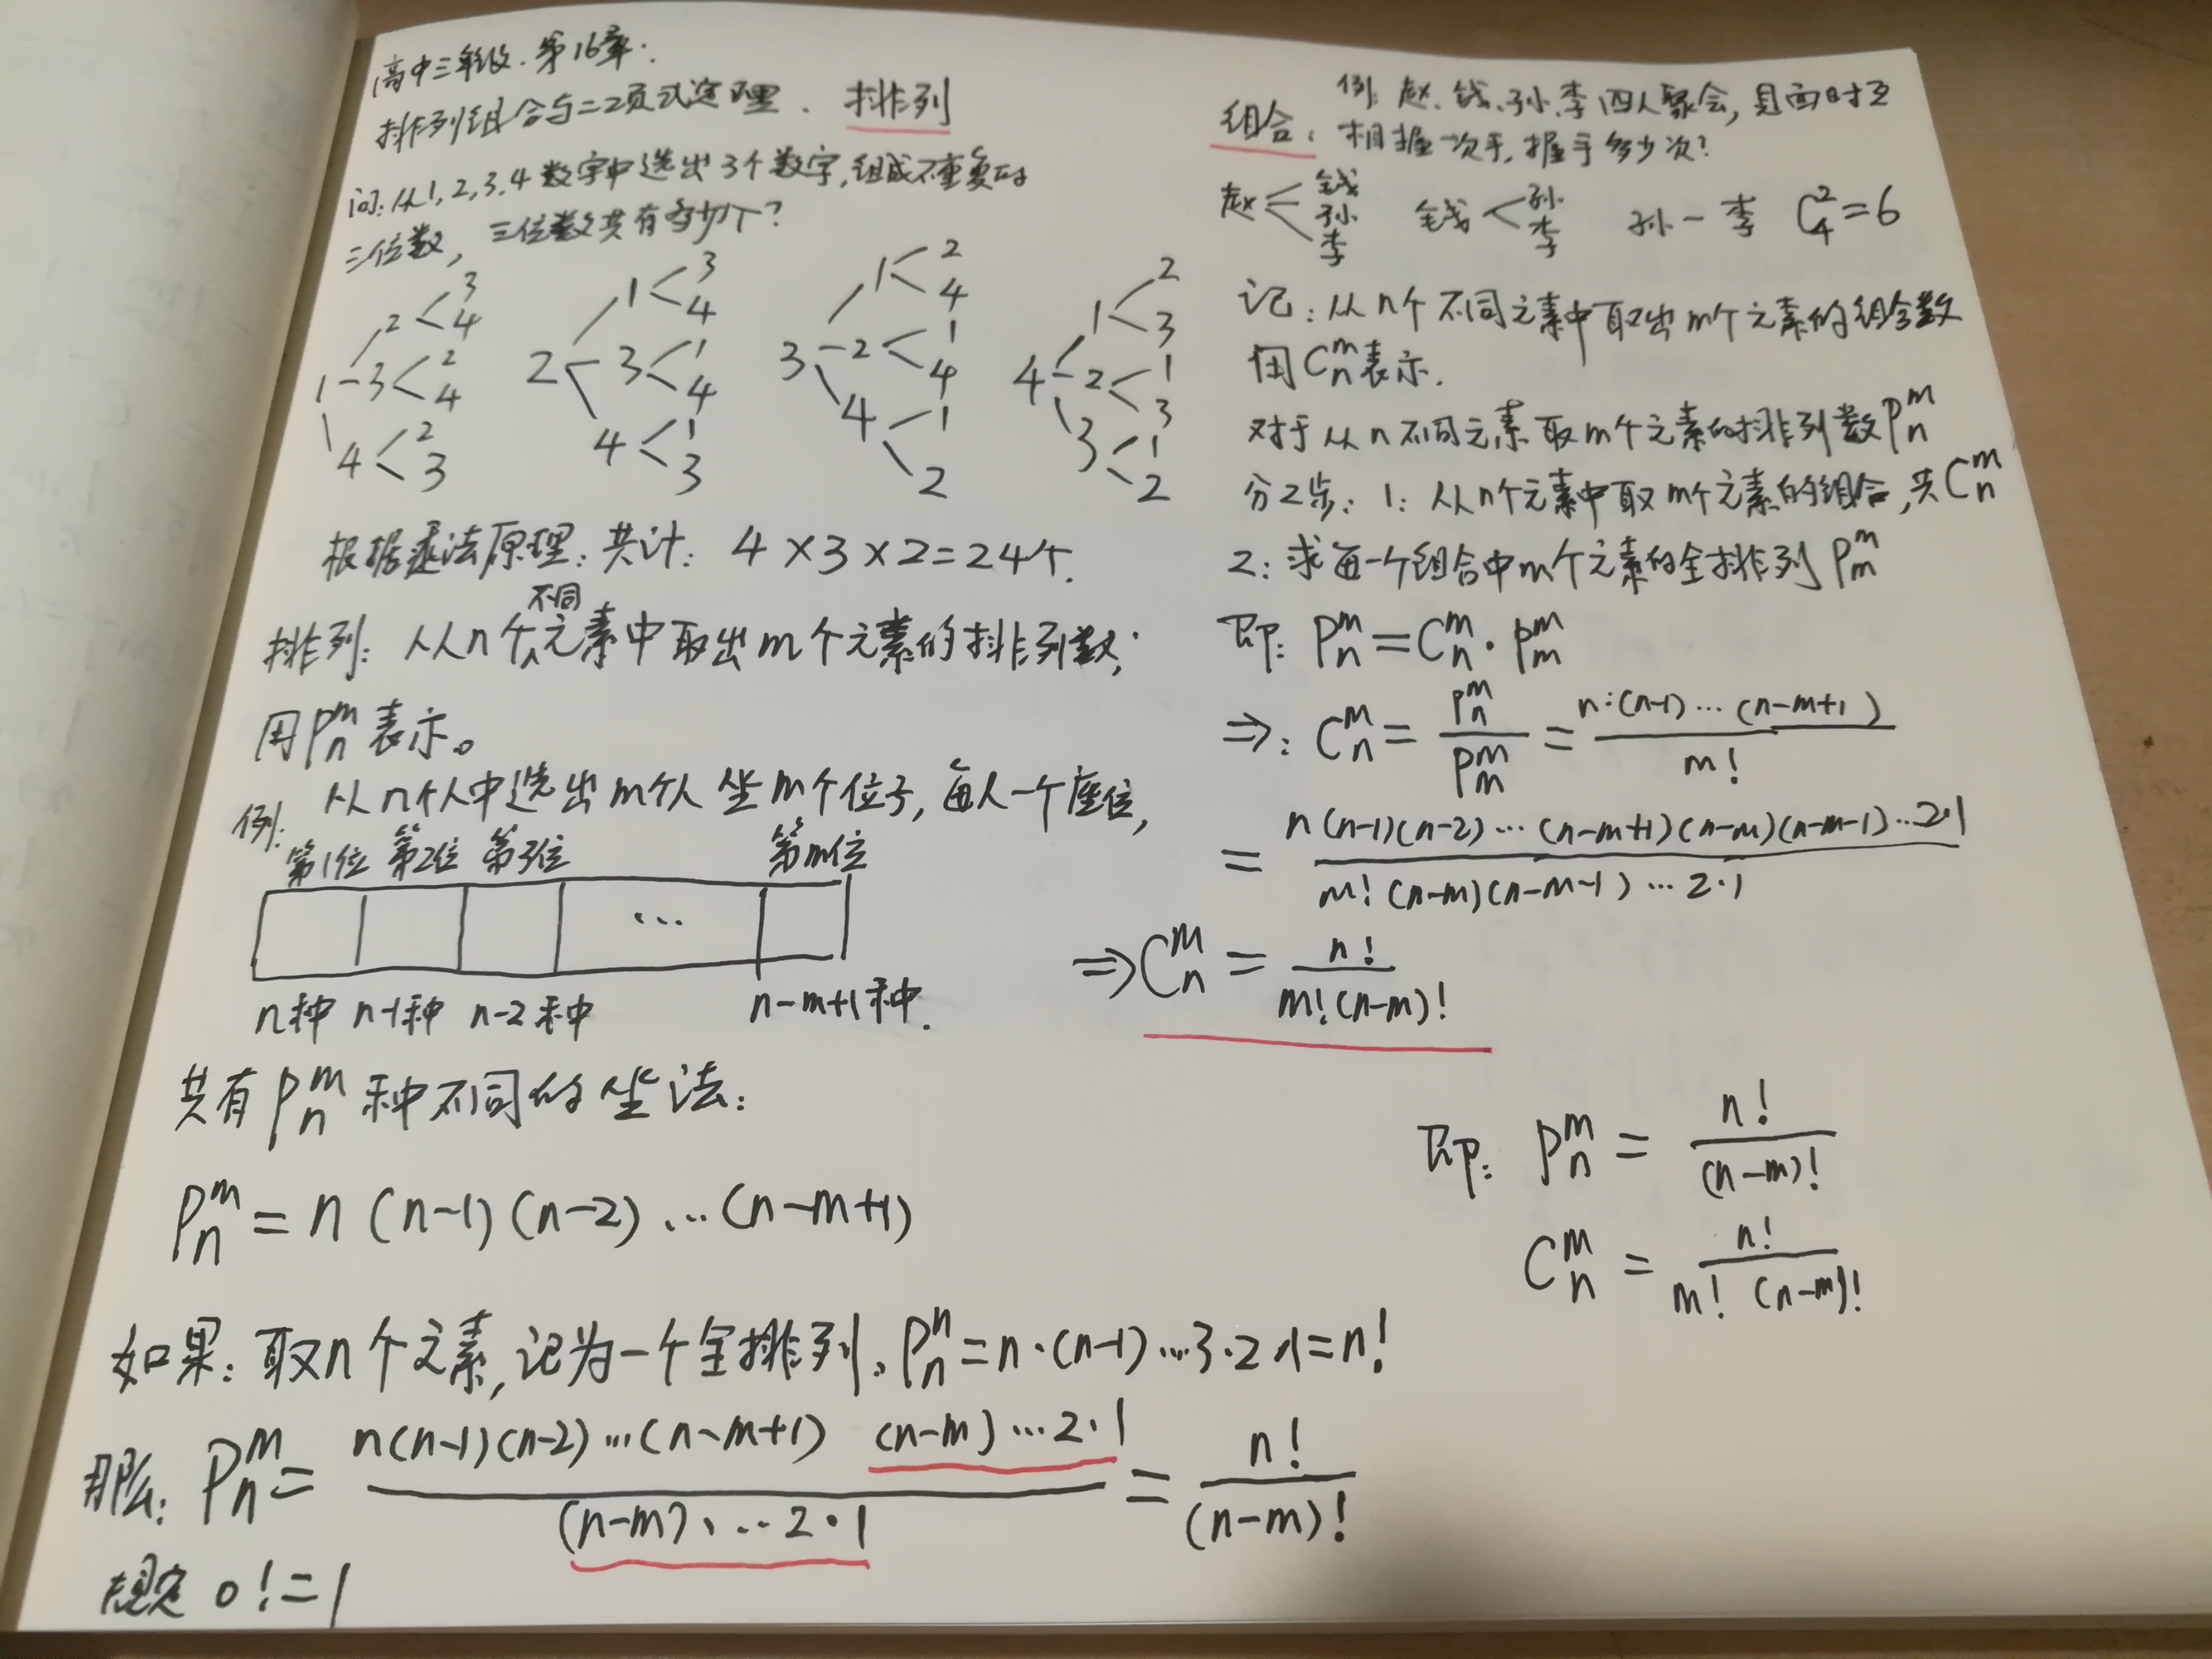 高中三年级. 第16章.
排列组合与二项式定理. 排列
问: 从1,2,3,4数字中选出3个数字,组成不重复的
三位数, 三位数共有多少个?
1 2 3 4
3 2 4
4 2 3
2 1 3 4
3 1 4
4 1 3
3 1 2 4
2 1 4
4 1 2
4 1 2 3
2 1 3
3 1 2
根据乘法原理: 共计: 4×3×2=24个.
排列: 从n个不同元素中取出m个元素的排列数;
用Pₙᵐ表示。
例: 从n个人中选出m个人坐m个位子, 每人一个座位,
第1位 第2位 第3位 第m位
...
n种 n-1种 n-2种 n-m+1种.
共有Pₙᵐ种不同的坐法:
Pₙᵐ=n(n-1)(n-2)...(n-m+1)
如果: 取n个元素, 记为一个全排列. Pₙⁿ=n·(n-1)...3·2·1=n!
那么: Pₙᵐ= n(n-1)(n-2)...(n-m+1) (n-m)...2·1 / (n-m)·...2·1 = n! / (n-m)!
规定 0!=1
组合: 例: 赵、钱、孙、李四人聚会, 见面时互
相握一次手, 握手多少次?
赵 钱 孙 李 钱 孙 李 孙-李 C₄²=6
记: 从n个不同元素中取出m个元素的组合数
用Cₙᵐ表示.
对于从n不同元素取m个元素的排列数Pₙᵐ
分2步: 1: 从n个元素中取m个元素的组合, 共Cₙᵐ
2: 求每一个组合中m个元素的全排列Pₘᵐ
即: Pₙᵐ=Cₙᵐ·Pₘᵐ
⇒: Cₙᵐ= Pₙᵐ / Pₘᵐ = n·(n-1)...(n-m+1) / m!
= n(n-1)(n-2)...(n-m+1)(n-m)(n-m-1)...2·1 / m!(n-m)(n-m-1)...2·1
⇒Cₙᵐ = n! / m!(n-m)!
即: Pₙᵐ = n! / (n-m)!
Cₙᵐ = n! / m! (n-m)!